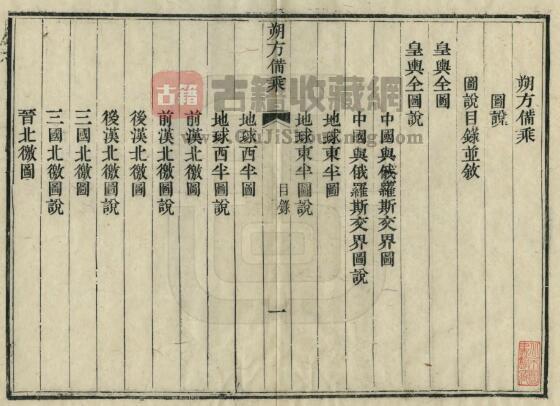 朔方備乘
圖說
圖說目錄並敘
皇輿全圖
皇輿全圖說
中國與俄羅斯交界圖
中國與俄羅斯交界圖說
地球東半圖
地球東半圖說
朔方備乘
目錄
一
地球西半圖
地球西半圖說
前漢北徼圖
前漢北徼圖說
後漢北徼圖
後漢北徼圖說
三國北徼圖
三國北徼圖說
晉北徼圖
古籍
古籍收藏網